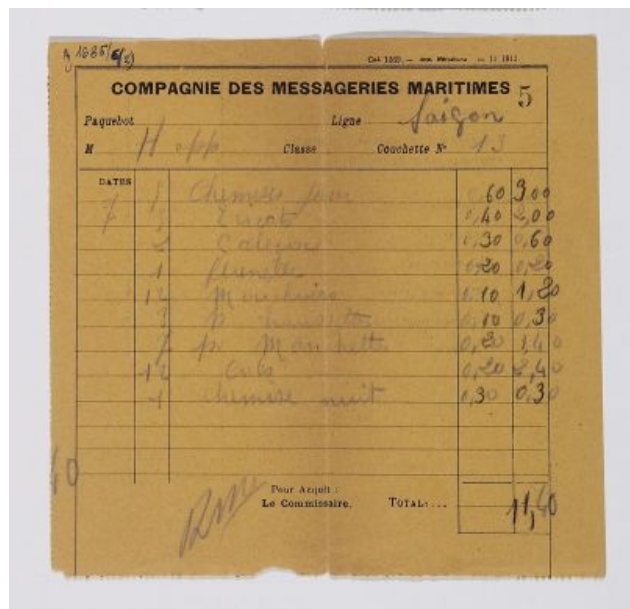 COMPAGNIE DES MESSAGERIES MARITIMES 5
Paquebot Ligne Saïgon
M Classe Couchette Nº 13
DATES
Chemises jour 0,60 3,00
0,40 2,00
Caleçons 0,30 0,60
1 flanelle 0,20 0,20
12 Mouchoirs 0,10 1,20
3 p. chaussettes 0,10 0,30
7 p. Manchettes 0,20 1,40
12 Cols 0,20 2,40
1 Chemise nuit 0,30 0,30
Pour Acquit :
Le Commissaire, TOTAL: ... 11,40